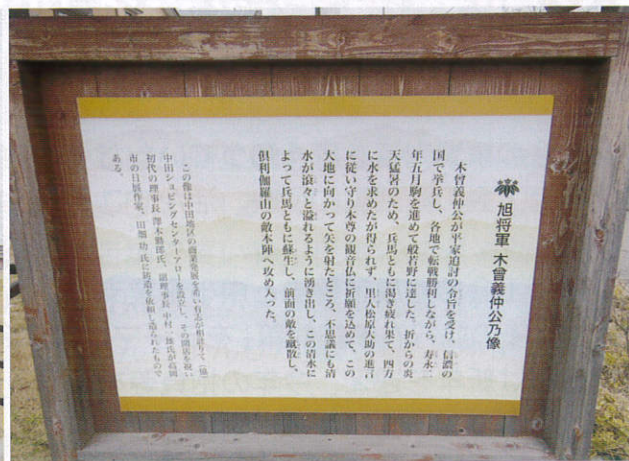 旭将軍 木曾義仲公乃像
木曾義仲公が平家追討の令旨を受け、信濃の
国で挙兵し、各地で転戦勝利しながら、寿永二
年五月駒を進めて般若野に達した。折からの炎
天猛暑のため、兵馬ともに渇き疲れ果て、四方
に水を求めたが得られず、里人松原大助の進言
に従い守り本尊の観音仏に祈願を込めて、この
大地に向かって矢を射たところ、不思議にも清
水が滾々と溢れるように湧き出し、この清水に
よって兵馬ともに蘇生し、前面の敵を蹴散し、
倶利伽羅山の敵本陣へ攻め入った。
この像は中田地区の商業発展を希い有志が相計りて、(協)
中田ショッピングセンターアローを設立し、その開店を祝い
初代の理事長 澤木勤郎氏、副理事長 中村一雄氏が高岡
市の日展作家、田畑功氏に鋳造を依頼し造られたもので
ある。